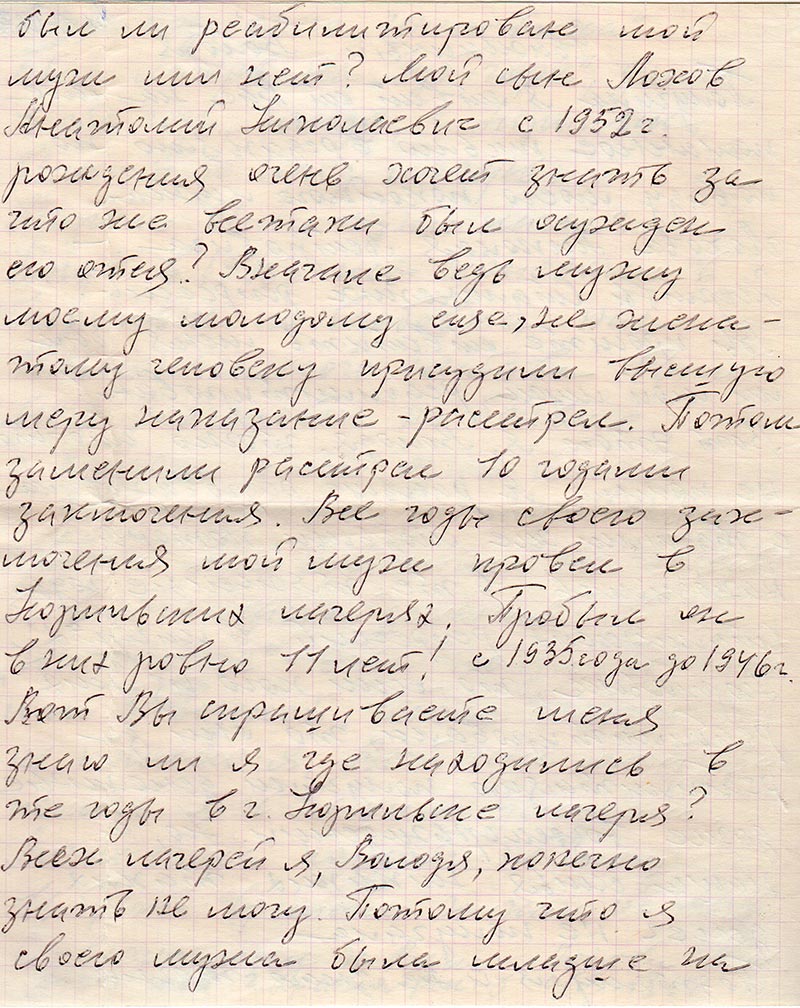 был ли реабилитирован мой
муж или нет? Мой сын Лохов
Анатолий Николаевич с 1952 г.
рождения очень хочет знать за
что же всетаки был осужден
его отец? Вначале ведь мужу
моему молодому еще, не жена-
тому человеку присудили высшую
меру наказание - расстрел. Потом
заменили расстрел 10 годами
заключения. Все годы своего зак-
лючения мой муж провел в
Норильских лагерях. Пробыл он
в них ровно 11 лет! с 1935 года до 1946 г.
Вот Вы спрашиваете меня
знаю ли я где находились в
те годы в г. Норильске лагеря?
Всех лагерей я, Володя, конечно
знать не могу. Потому что я
своего мужа была младше на